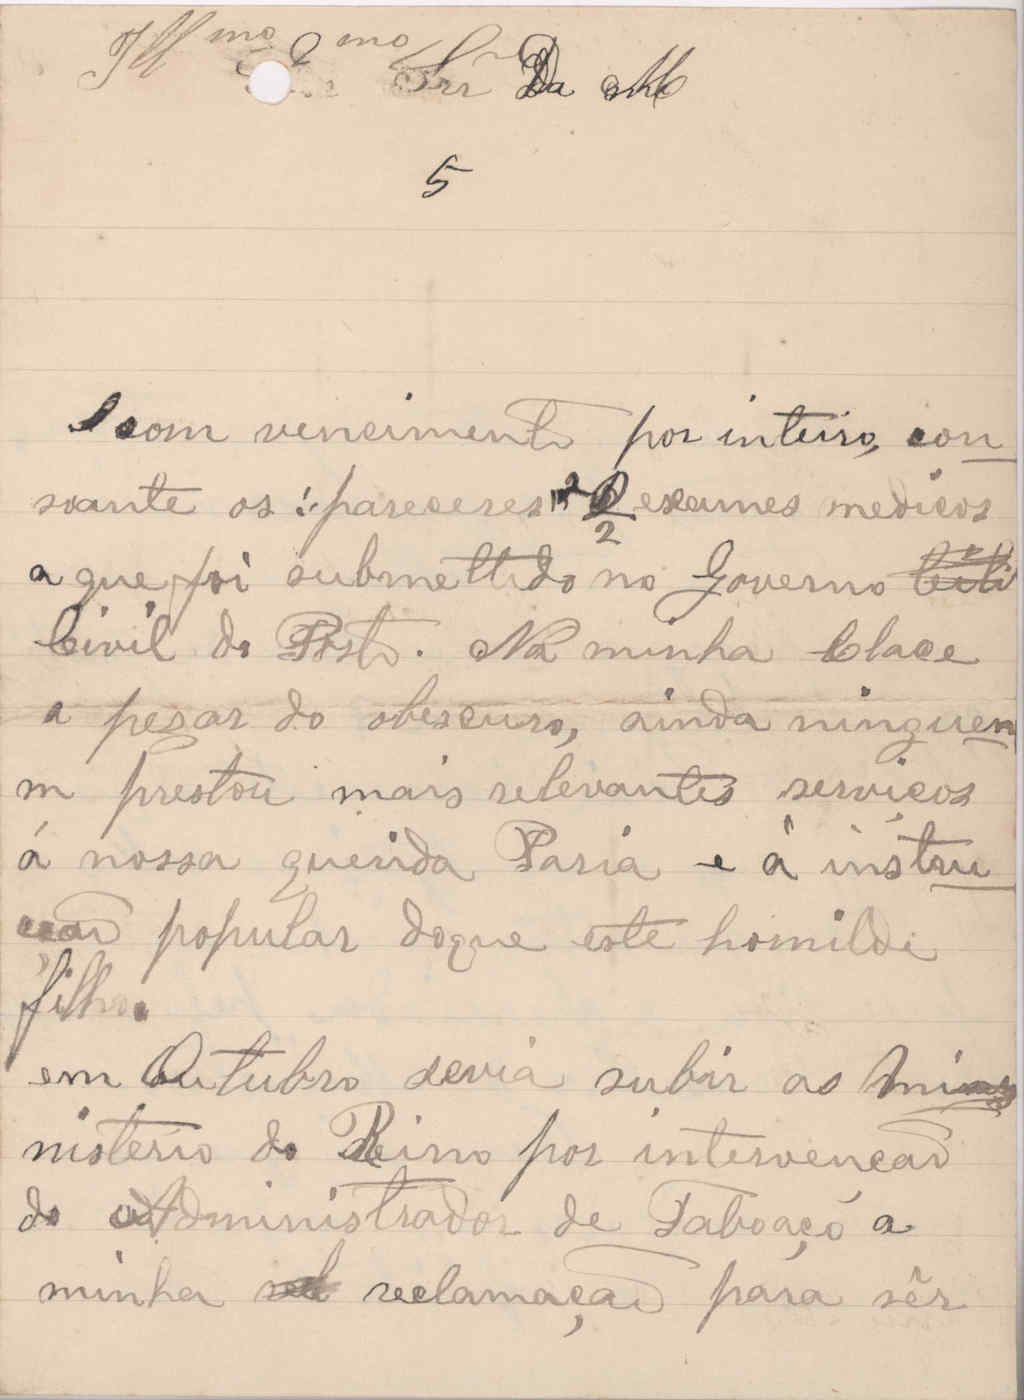 Illmo Exmo Snr Da M
5
com vencimento por inteiro, con
soante os pareceres 2 exames medicos
a que foi submettido no Governo
Civil do Porto. Na minha Clace
a pezar do obescuro, ainda ninguen
m prestou mais relevantes serviços
á nossa querida Paria e á instru
çaõ popular doque este homilde
filho.
em Outubro devia subir ao Mi
nisterio do Reino por intervencaõ
do Administrador de Taboaço a
minha reclamaçaõ para sêr